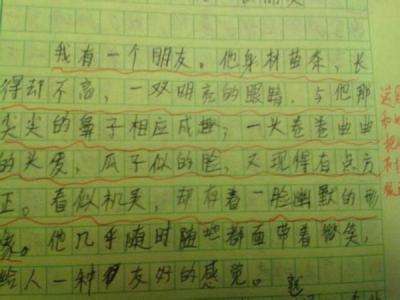 我有一个朋友。他身材苗条，长
得却不高，一双明亮的眼睛，与他那
尖尖的鼻子相应成趣，一头卷卷曲曲
的头发，瓜子似的脸，又现得有点方
正。看似机灵，却存着一脸幽默的形
象。他几乎随时随地都面带着微笑，
给人一种友好的感觉。